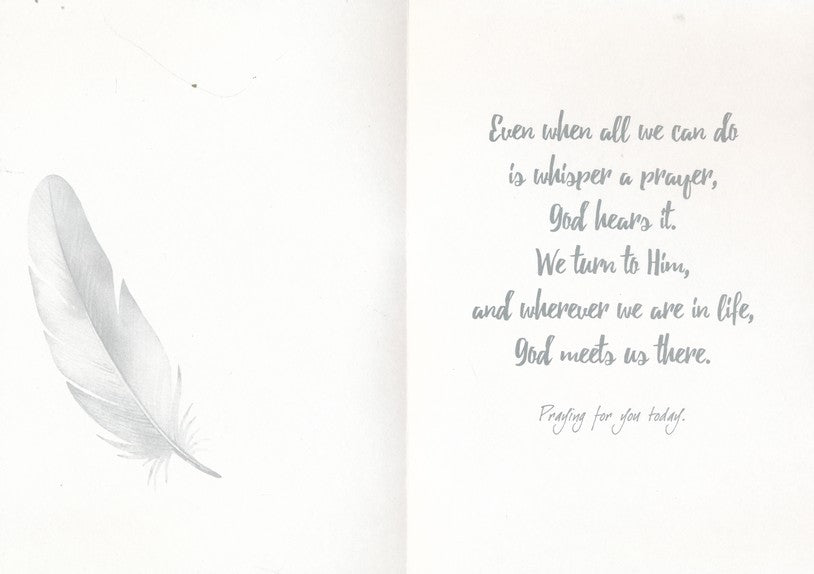 Even when all we can do
is whisper a prayer,
God hears it.
We turn to Him,
and wherever we are in life,
God meets us there.
Praying for you today.